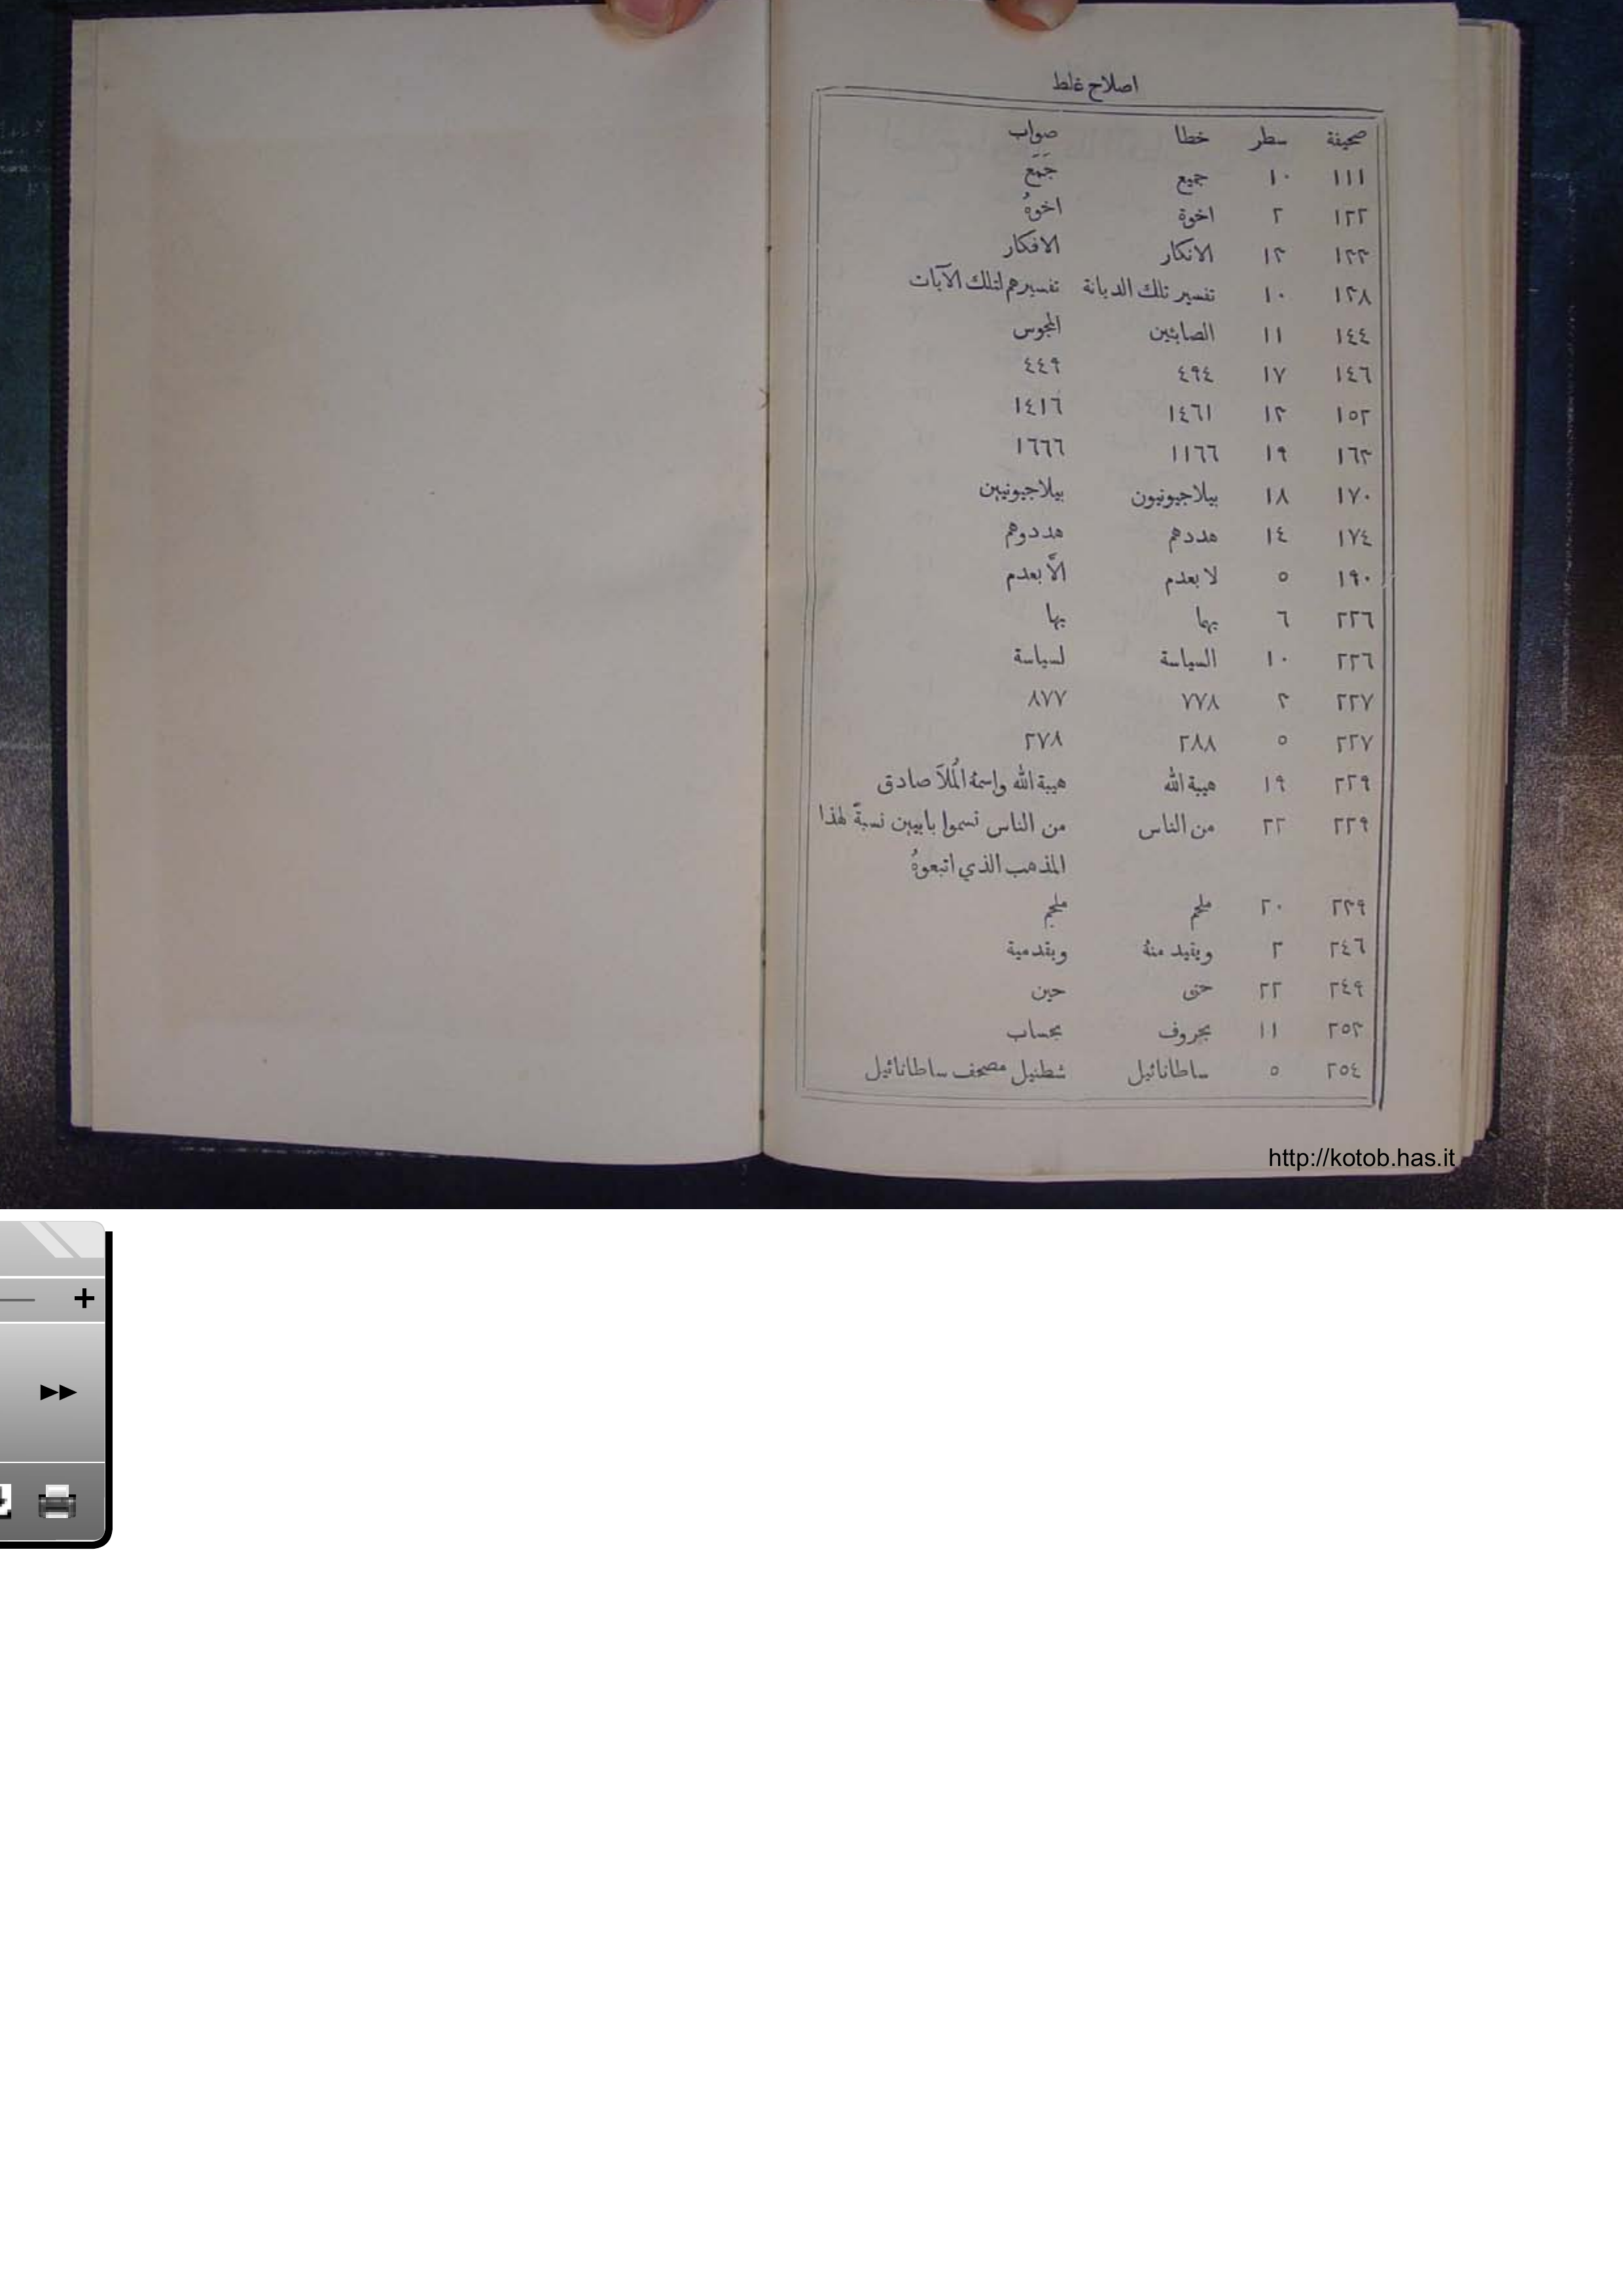 اصلاح غلط
صحيفة سطر خطا صواب
١١١ ١٠ جميع جَمَعَ
١٢٢ ٢ اخوة اخوهُ
١٣٣ ١٣ الانكار الافكار
١٣٨ ١٠ تفسير تلك الديانة تفسيرهم لتلك الآيات
١٤٤ ١١ الصابئين المجوس
١٤٦ ١٧ ٤٩٤ ٤٤٩
١٥٢ ١٣ ١٤٦١ ١٤١٦
١٦٣ ١٩ ١١٦٦ ١٦٦٦
١٧٠ ١٨ بيلاجيونيون بيلاجيونيين
١٧٤ ١٤ هددهم هددوهم
١٩٠ ٥ لا بعدم الاَّ بعدم
٢٢٦ ٦ بهما بها
٢٢٦ ١٠ السياسة لسياسة
٢٢٧ ٣ ٧٧٨ ٨٧٧
٢٢٧ ٥ ٢٨٨ ٢٧٨
٢٢٩ ١٩ هيبة الله هيبة الله واسمهُ المُلاَ صادق
٢٢٩ ٢٢ من الناس من الناس تسموا بابيين نسبةً لهذا
المذهب الذي اتبعوهُ
٢٣٩ ٢٠ ملحم ملجم
٢٤٦ ٢ ويفيد منهُ وبقدمية
٢٤٩ ٢٢ حتى حين
٢٥٣ ١١ بحروف بحساب
٢٥٤ ٥ ساطانائيل شطنيل مصحف ساطانائيل
http://kotob.has.it